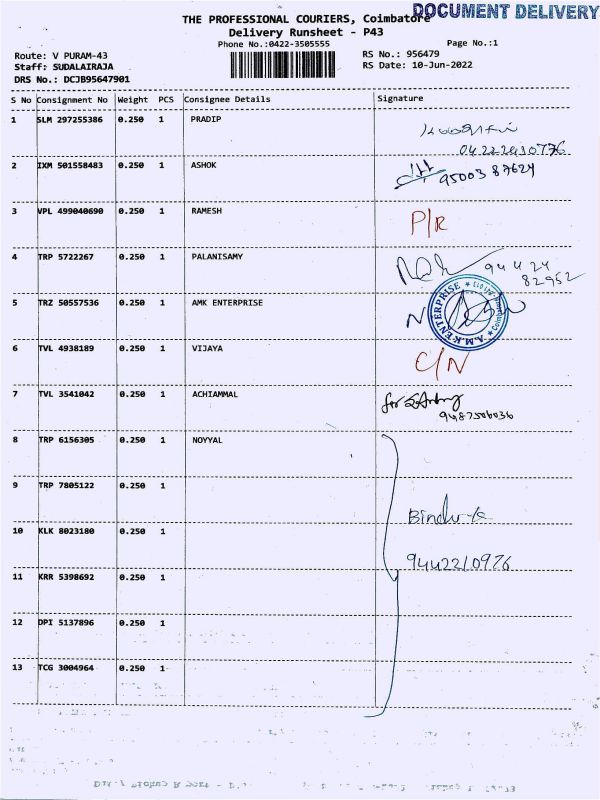 DOCUMENT DELIVERY
THE PROFESSIONAL COURIERS, Coimbatore
Delivery Runsheet - P43
Phone No.:0422-3505555
Page No.:1
Route: V PURAM-43
RS No.: 956479
Staff: SUDALAIRAJA
RS Date: 10-Jun-2022
DRS No.: DCJB95647901
S No Consignment No Weight PCS Consignee Details Signature
1 SLM 297255386 0.250 1 PRADIP
04222210776
2 IXM 501558483 0.250 1 ASHOK
95003 87624
3 VPL 499040690 0.250 1 RAMESH P/R
4 TRP 5722267 0.250 1 PALANISAMY
94424
82952
5 TRZ 50557536 0.250 1 AMK ENTERPRISE
A.M.K ENTERPRISE
6 TVL 4938189 0.250 1 VIJAYA C/N
7 TVL 3541042 0.250 1 ACHIAMMAL for
9487506036
8 TRP 6156305 0.250 1 NOYYAL
9 TRP 7805122 0.250 1
Bindu
10 KLK 8023180 0.250 1
9442210976
11 KRR 5398692 0.250 1
12 DPI 5137896 0.250 1
13 TCG 3004964 0.250 1